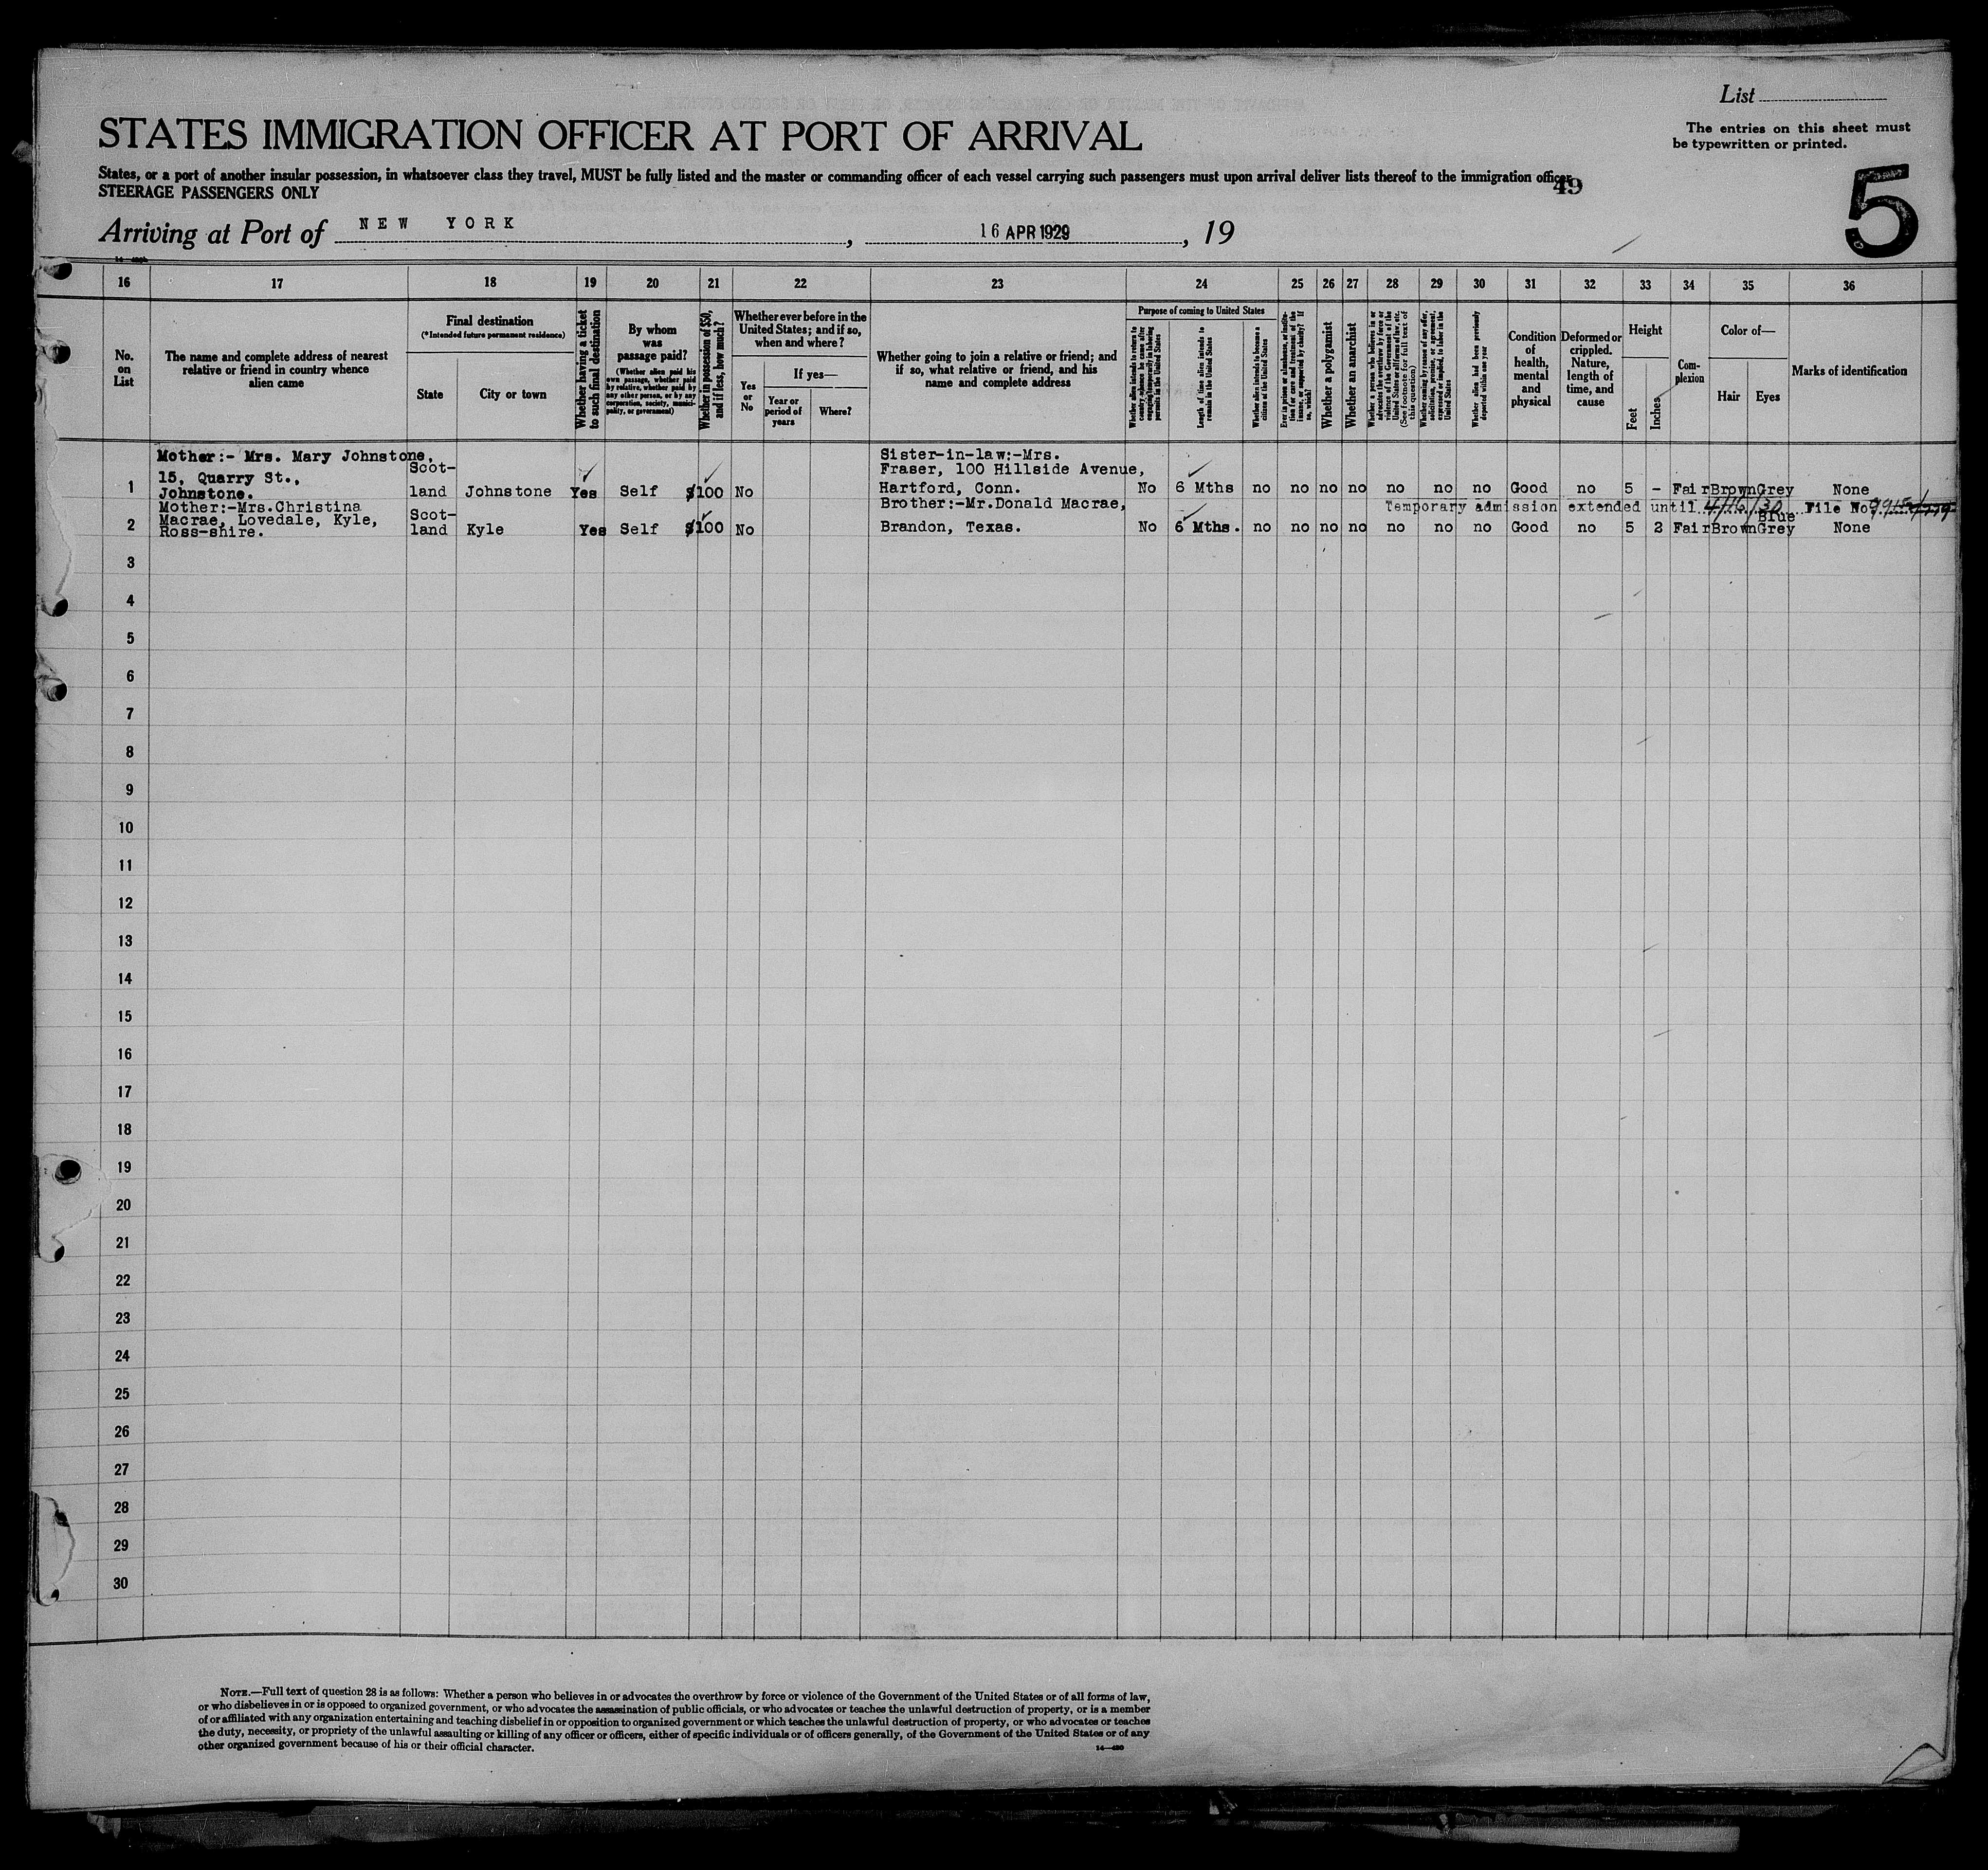 List
The entries on this sheet must
be typewritten or printed.
STATES IMMIGRATION OFFICER AT PORT OF ARRIVAL
States, or a port of another insular possession, in whatsoever class they travel, MUST be fully listed and the master or commanding officer of each vessel carrying such passengers must upon arrival deliver lists thereof to the immigration officer
STEERAGE PASSENGERS ONLY
49
5
Arriving at Port of NEW YORK, 16 APR 1929, 19
16 17 18 19 20 21 22 23 24 25 26 27 28 29 30 31 32 33 34 35 36
No.
on
List
The name and complete address of nearest
relative or friend in country whence
alien came
Final destination
(*Intended future permanent residence)
State
City or town
Whether having a ticket
to such final destination
By whom
was
passage paid?
(Whether alien paid his
own passage, whether paid
by relative, whether paid by
any other person, or by any
corporation, society, munici-
pality, or government)
Whether in possession of $50,
and if less, how much?
Whether ever before in the
United States; and if so,
when and where?
Yes
or
No
If yes—
Year or
period of
years
Where?
Whether going to join a relative or friend; and
if so, what relative or friend, and his
name and complete address
Purpose of coming to United States
Whether alien intends to return to
country whence he came after
engaging temporarily in laboring
pursuits in the United States
Length of time alien intends to
remain in the United States
Whether alien intends to become a
citizen of the United States
Ever in prison or almshouse, or institu-
tion for care and treatment of the
insane, or supported by charity? If
so, which?
Whether a polygamist
Whether an anarchist
Whether a person who believes in or
advocates the overthrow by force or
violence of the Government of the
United States or all forms of law, etc.
(See footnote for full text of
this question)
Whether coming by reason of any offer,
solicitation, promise, or agreement,
expressed or implied, to labor in the
United States
Whether alien had been previously
deported within one year
Condition
of
health,
mental
and
physical
Deformed or
crippled.
Nature,
length of
time, and
cause
Height
Feet
Inches
Com-
plexion
Color of—
Hair
Eyes
Marks of identification
Mother:- Mrs. Mary Johnstone,
15, Quarry St.,
Johnstone.
1 Scot-
land Johnstone Yes Self $100 No
Sister-in-law:-Mrs.
Fraser, 100 Hillside Avenue,
Hartford, Conn.
No 6 Mths no no no no no no no Good no 5 - Fair Brown Grey None
Mother:-Mrs.Christina
Macrae, Lovedale, Kyle,
Ross-shire.
2 Scot-
land Kyle Yes Self $100 No
Brother:-Mr.Donald Macrae,
Brandon, Texas.
Temporary admission extended until 4/16/30 File No.
No 6 Mths. no no no no no no no Good no 5 2 Fair Brown Blue
Grey None
3
4
5
6
7
8
9
10
11
12
13
14
15
16
17
18
19
20
21
22
23
24
25
26
27
28
29
30
NOTE.—Full text of question 28 is as follows: Whether a person who believes in or advocates the overthrow by force or violence of the Government of the United States or of all forms of law,
or who disbelieves in or is opposed to organized government, or who advocates the assassination of public officials, or who advocates or teaches the unlawful destruction of property, or is a member
of or affiliated with any organization entertaining and teaching disbelief in or opposition to organized government or which teaches the unlawful destruction of property, or who advocates or teaches
the duty, necessity, or propriety of the unlawful assaulting or killing of any officer or officers, either of specific individuals or of officers generally, of the Government of the United States or of any
other organized government because of his or their official character.
14—420